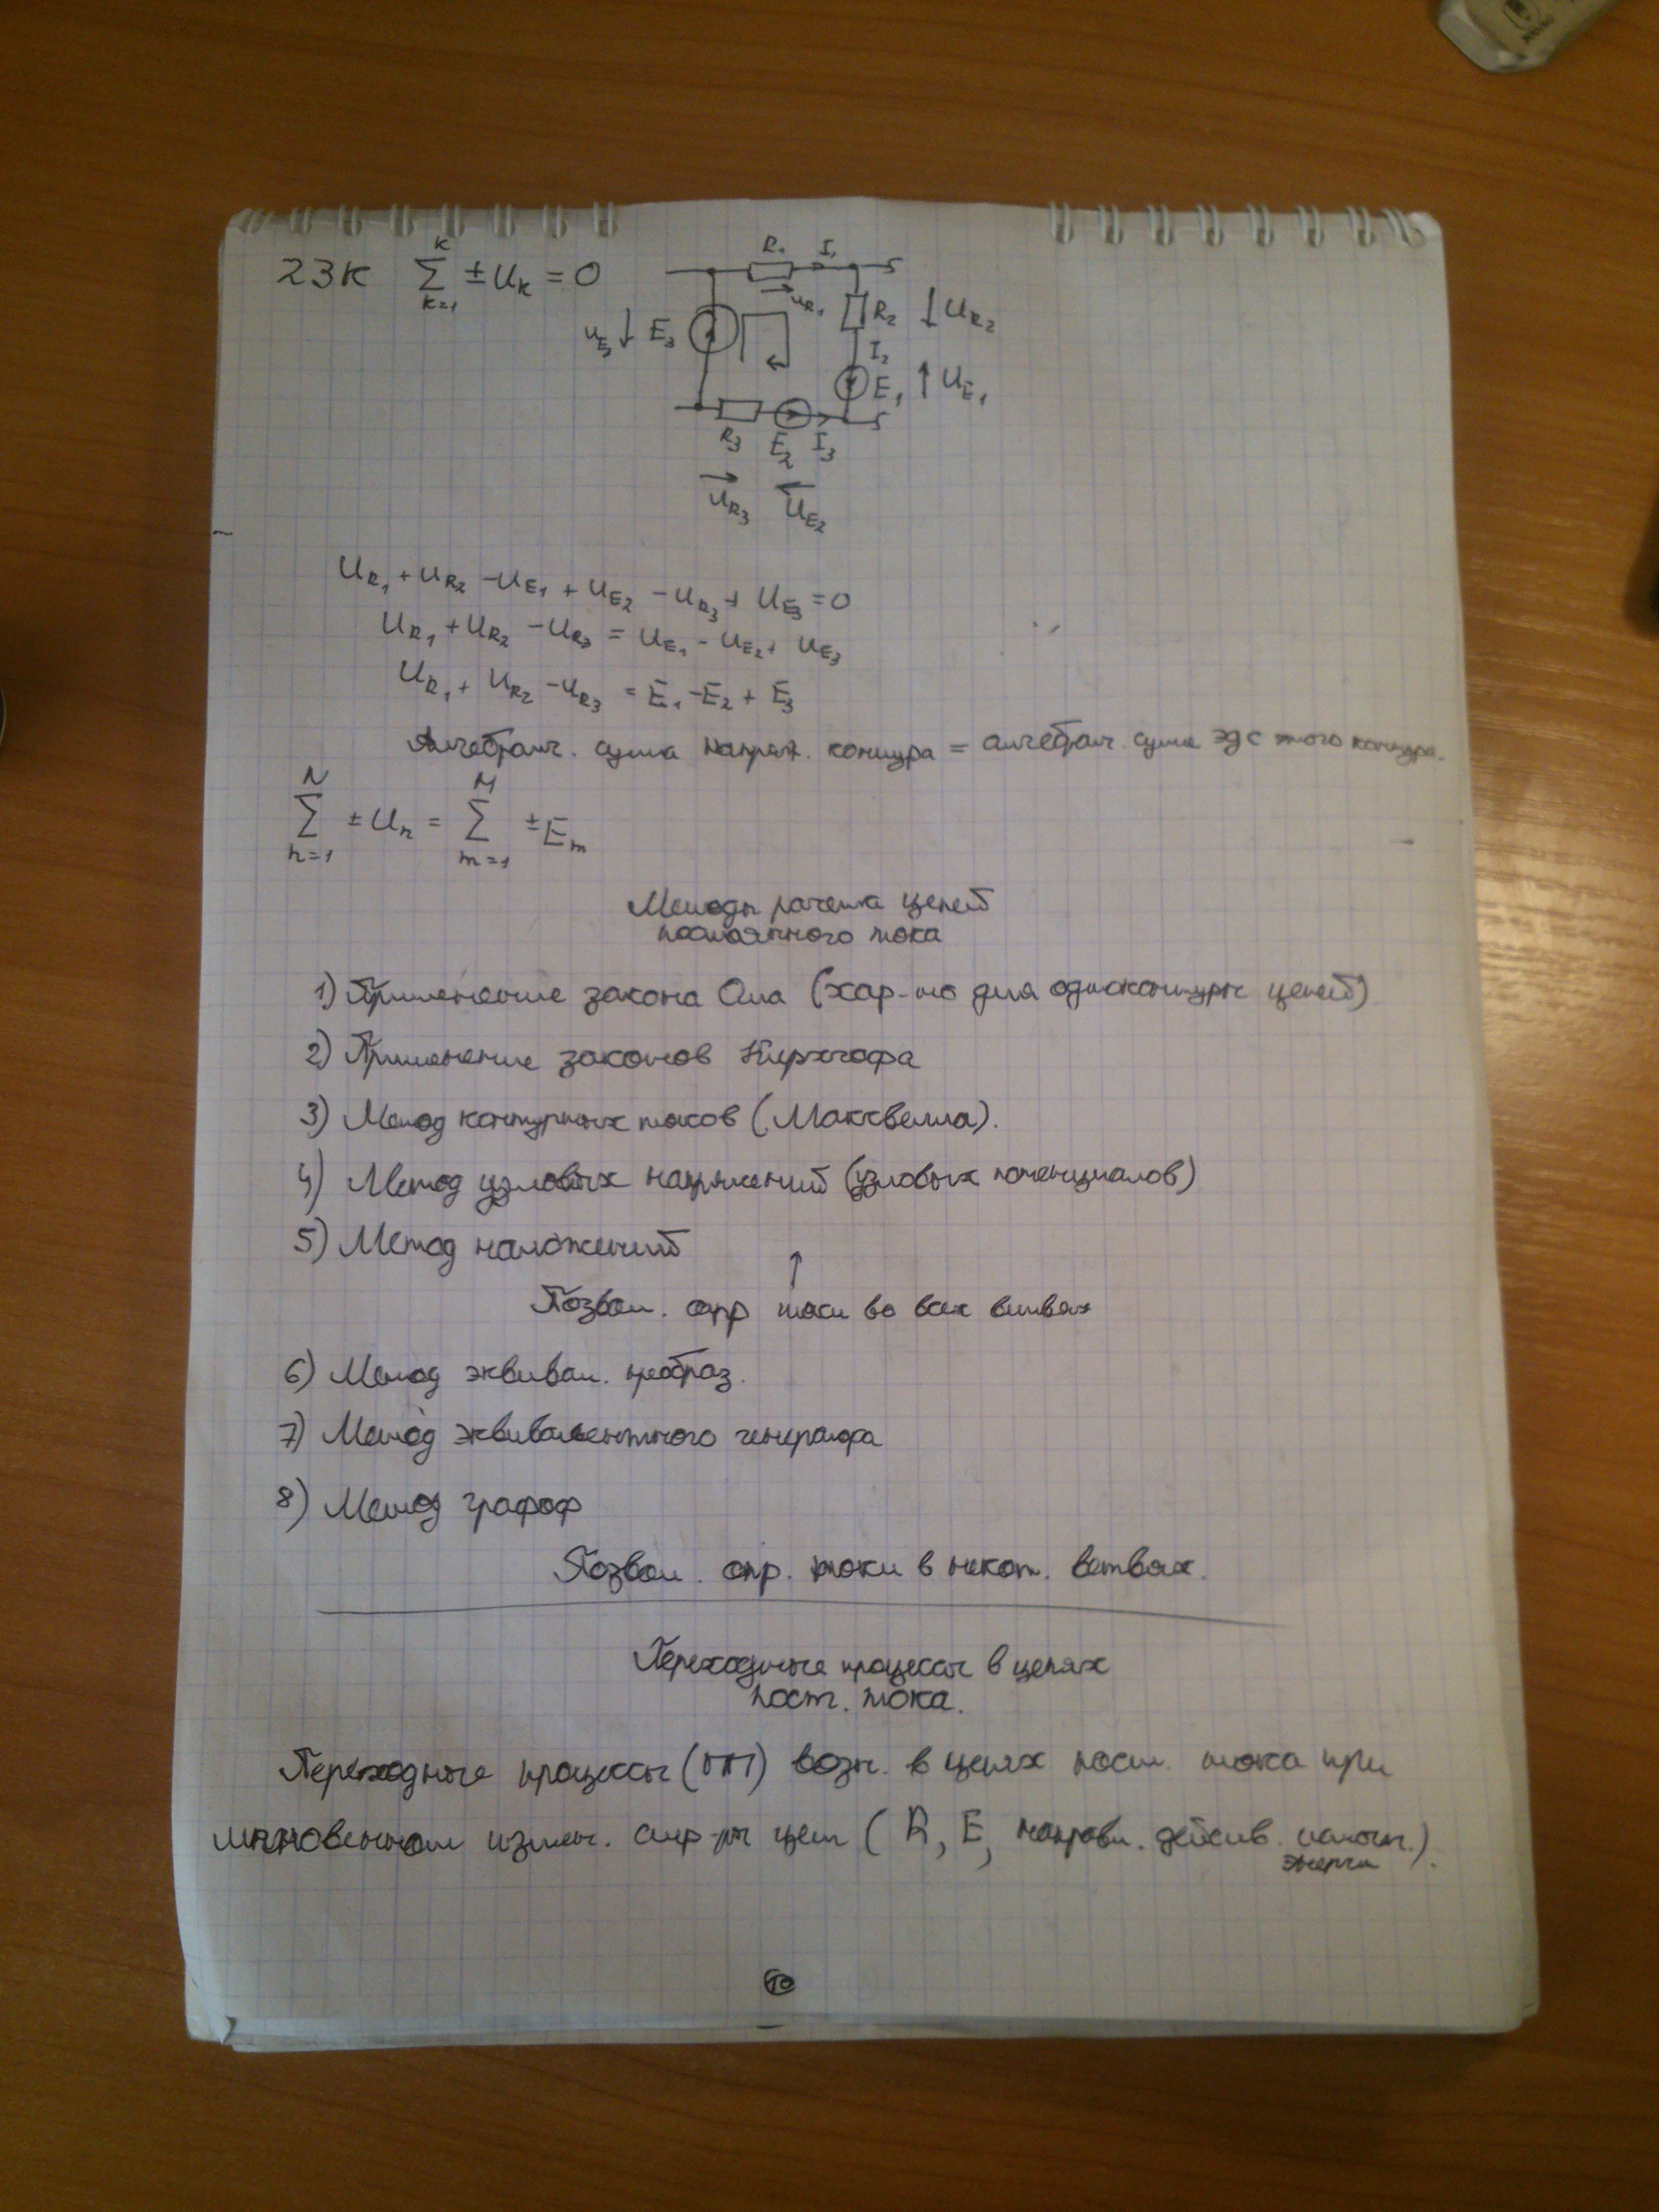 2ЗК $\sum_{k=1}^{K} \pm U_k = 0$
R₁ I₁
U_{R1}
R₂ ↓U_{R2}
U_{E3}↓ E₃
I₂
E₁ ↑U_{E1}
R₃ E₂ I₃
U_{R3} U_{E2}
U_{R1} + U_{R2} - U_{E1} + U_{E2} - U_{R3} + U_{E3} = 0
U_{R1} + U_{R2} - U_{R3} = U_{E1} - U_{E2} + U_{E3}
U_{R1} + U_{R2} - U_{R3} = E₁ - E₂ + E₃
Алгебраич. сумма напряж. контура = алгебраич. сумме ЭДС этого контура.
$\sum_{n=1}^{N} \pm U_n = \sum_{m=1}^{M} \pm E_m$
Методы расчета цепей
постоянного тока
1) Применение закона Ома (хар-но для одноконтурн цепей)
2) Применение законов Кирхгофа
3) Метод контурных токов (Максвелла).
4) Метод узловых напряжений (узловых потенциалов)
5) Метод наложений
↑
Позвол. опр токи во всех ветвях
6) Метод эквивал. преобраз.
7) Метод эквивалентного генератора
8) Метод графоф
Позвол. опр. токи в некот. ветвях.
Переходные процессы в цепях
пост. тока.
Переходные процессы (ПП) возн. в цепях пост. тока при
мгновенном измен. стр-ры цепи (R, E, направл. действ. источн.).
энергии
10